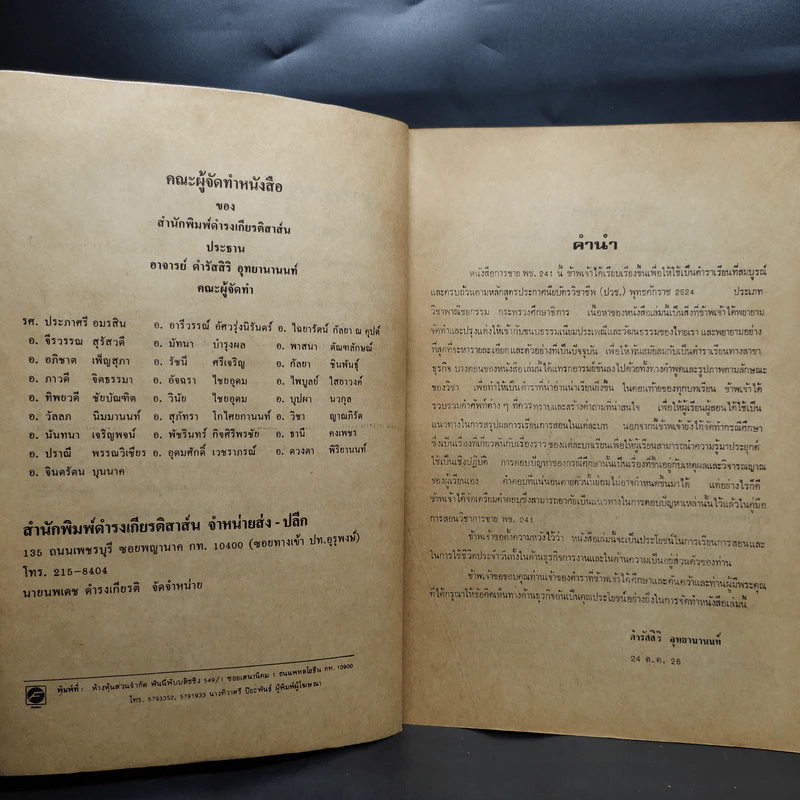 คณะผู้จัดทำหนังสือ
ของ
สำนักพิมพ์ดำรงเกียรติสาส์น
ประธาน
อาจารย์ ดำรัสสิริ อุทยานานนท์
คณะผู้จัดทำ
รศ. ประภาศรี อมรสิน อ. อารีวรรณ์ อัศวรุ่งนิรันดร์ อ. ไฉยารัตน์ กัลยา ณ คุปต์
อ. จีรวรรณ สุรัสวดี อ. มัทนา บำรุงผล อ. พาสนา ตัณฑลักษณ์
อ. อภิชาต เพ็ญสุภา อ. รัชนี ศรีเจริญ อ. กัลยา ชินพันธุ์
อ. ภาวดี จิตธรรมา อ. อัจฉรา ไชยอุดม อ. ไพบูลย์ ไสยาวงค์
อ. ทิพยวดี ชัยบัณฑิต อ. วินัย ไชยอุดม อ. บุปผา นวกุล
อ. วัลลภ นิมมานนท์ อ. สุภัทรา โกไศยกานนท์ อ. วิชา ญาณภิรัต
อ. นันทนา เจริญพจน์ อ. พัชรินทร์ กิจศิริพรชัย อ. ธานี คงเพชร
อ. ปราณี พรรณวิเชียร อ. อุดมศักดิ์ เวชราภรณ์ อ. ดวงตา พิริยานนท์
อ. จินตรัตน บุนนาค
สำนักพิมพ์ดำรงเกียรติสาส์น จำหน่ายส่ง - ปลีก
135 ถนนเพชรบุรี ซอยพญานาค กท. 10400 (ซอยทางเข้า ปท.อุรุพงษ์)
โทร. 215-8404
นายนพเดช ดำรงเกียรติ จัดจำหน่าย
พิมพ์ที่ : ห้างหุ้นส่วนจำกัด ฟันนี่พับบลิชชิ่ง 549/1 ซอยเสนานิคม 1 ถนนพหลโยธิน กท. 10900
โทร. 5793352, 5791933 นางทิวาศรี ปิยะพันธ์ ผู้พิมพ์ผู้โฆษณา
คำนำ
หนังสือการขาย พช. 241 นี้ ข้าพเจ้าได้เรียบเรียงขึ้นเพื่อให้ใช้เป็นตำราเรียนที่สมบูรณ์
และครบถ้วนตามหลักสูตรประกาศนียบัตรวิชาชีพ (ปวช.) พุทธศักราช 2524 ประเภท
วิชาพาณิชยกรรม กระทรวงศึกษาธิการ เนื้อหาของหนังสือเล่มนี้เป็นสิ่งที่ข้าพเจ้าได้พยายาม
จัดทำและปรุงแต่งให้เข้ากับขนบธรรมเนียมประเพณีและวัฒนธรรมของไทยเรา และพยายามอย่าง
ที่สุดที่จะหารายละเอียดและตัวอย่างที่เป็นปัจจุบัน เพื่อให้ทันสมัยสมกับเป็นตำราเรียนทางสาขา
ธุรกิจ บางตอนของหนังสือเล่มนี้ได้แทรกอารมย์ขันลงไปด้วยทั้งทางคำพูดและรูปภาพตามลักษณะ
ของวิชา เพื่อทำให้เป็นตำราที่น่าอ่านน่าเรียนยิ่งขึ้น ในตอนท้ายของทุกบทเรียน ข้าพเจ้าได้
รวบรวมคำศัพท์ต่าง ๆ ที่ควรทราบและสร้างคำถามที่น่าสนใจ เพื่อให้ผู้เรียนผู้สอนได้ใช้เป็น
แนวทางในการสรุปผลการเรียนการสอนในแต่ละบท นอกจากนี้ข้าพเจ้ายังได้จัดทำกรณีศึกษา
ซึ่งเป็นเรื่องที่เกี่ยวพันกับเรื่องราวของแต่ละบทเรียนเพื่อให้ผู้เรียนสามารถนำความรู้มาประยุกต์
ใช้เป็นเชิงปฏิบัติ การตอบปัญหาของกรณีศึกษานั้นเป็นเรื่องที่ขึ้นอยู่กับเหตุผลและวิจารณญาณ
ของผู้เรียนเอง คำตอบที่แน่นอนตายตัวนั้นย่อมไม่อาจกำหนดขึ้นมาได้ แต่อย่างไรก็ดี
ข้าพเจ้าได้จัดเตรียมคำตอบซึ่งสามารถอาศัยเป็นแนวทางในการตอบปัญหาเหล่านั้นไว้แล้วในคู่มือ
การสอนวิชาการขาย พช. 241
ข้าพเจ้าขอตั้งความหวังไว้ว่า หนังสือเล่มนี้จะเป็นประโยชน์ในการเรียนการสอนและ
ในการใช้ชีวิตประจำวันทั้งในด้านธุรกิจการงานและในด้านความเป็นอยู่ส่วนตัวของท่าน
ข้าพเจ้าขอขอบคุณท่านเจ้าของตำราที่ข้าพเจ้าได้ศึกษาและค้นคว้าและท่านผู้มีพระคุณ
ที่ได้กรุณาให้ข้อคิดเห็นทางด้านธุรกิจอันเป็นคุณประโยชน์อย่างยิ่งในการจัดทำหนังสือเล่มนี้
ดำรัสสิริ อุทยานานนท์
24 ต.ค. 26